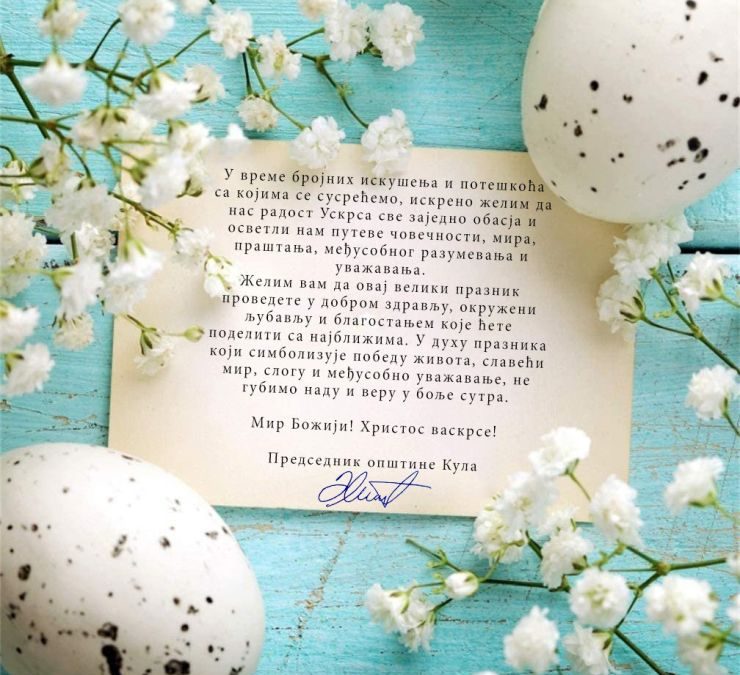 У време бројних искушења и потешкоћа
са којима се сусрећемо, искрено желим да
нас радост Ускрса све заједно обасја и
осветли нам путеве човечности, мира,
праштања, међусобног разумевања и
уважавања.
Желим вам да овај велики празник
проведете у добром здрављу, окружени
љубављу и благостањем које ћете
поделити са најближима. У духу празника
који симболизује победу живота, славећи
мир, слогу и међусобно уважавање, не
губимо наду и веру у боље сутра.
Мир Божији! Христос васкрсе!
Председник општине Кула